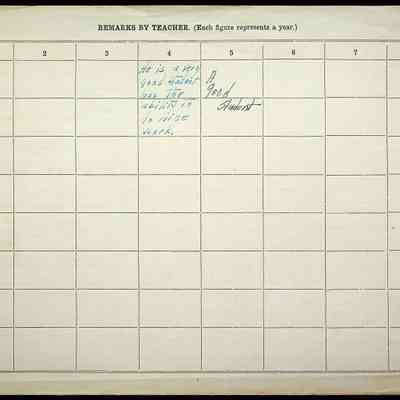 REMARKS BY TEACHER. (Each figure represents a year.)
2 3 4 5 6 7
He is a very
good student
has the
ability
to
work.
A
Good
Student